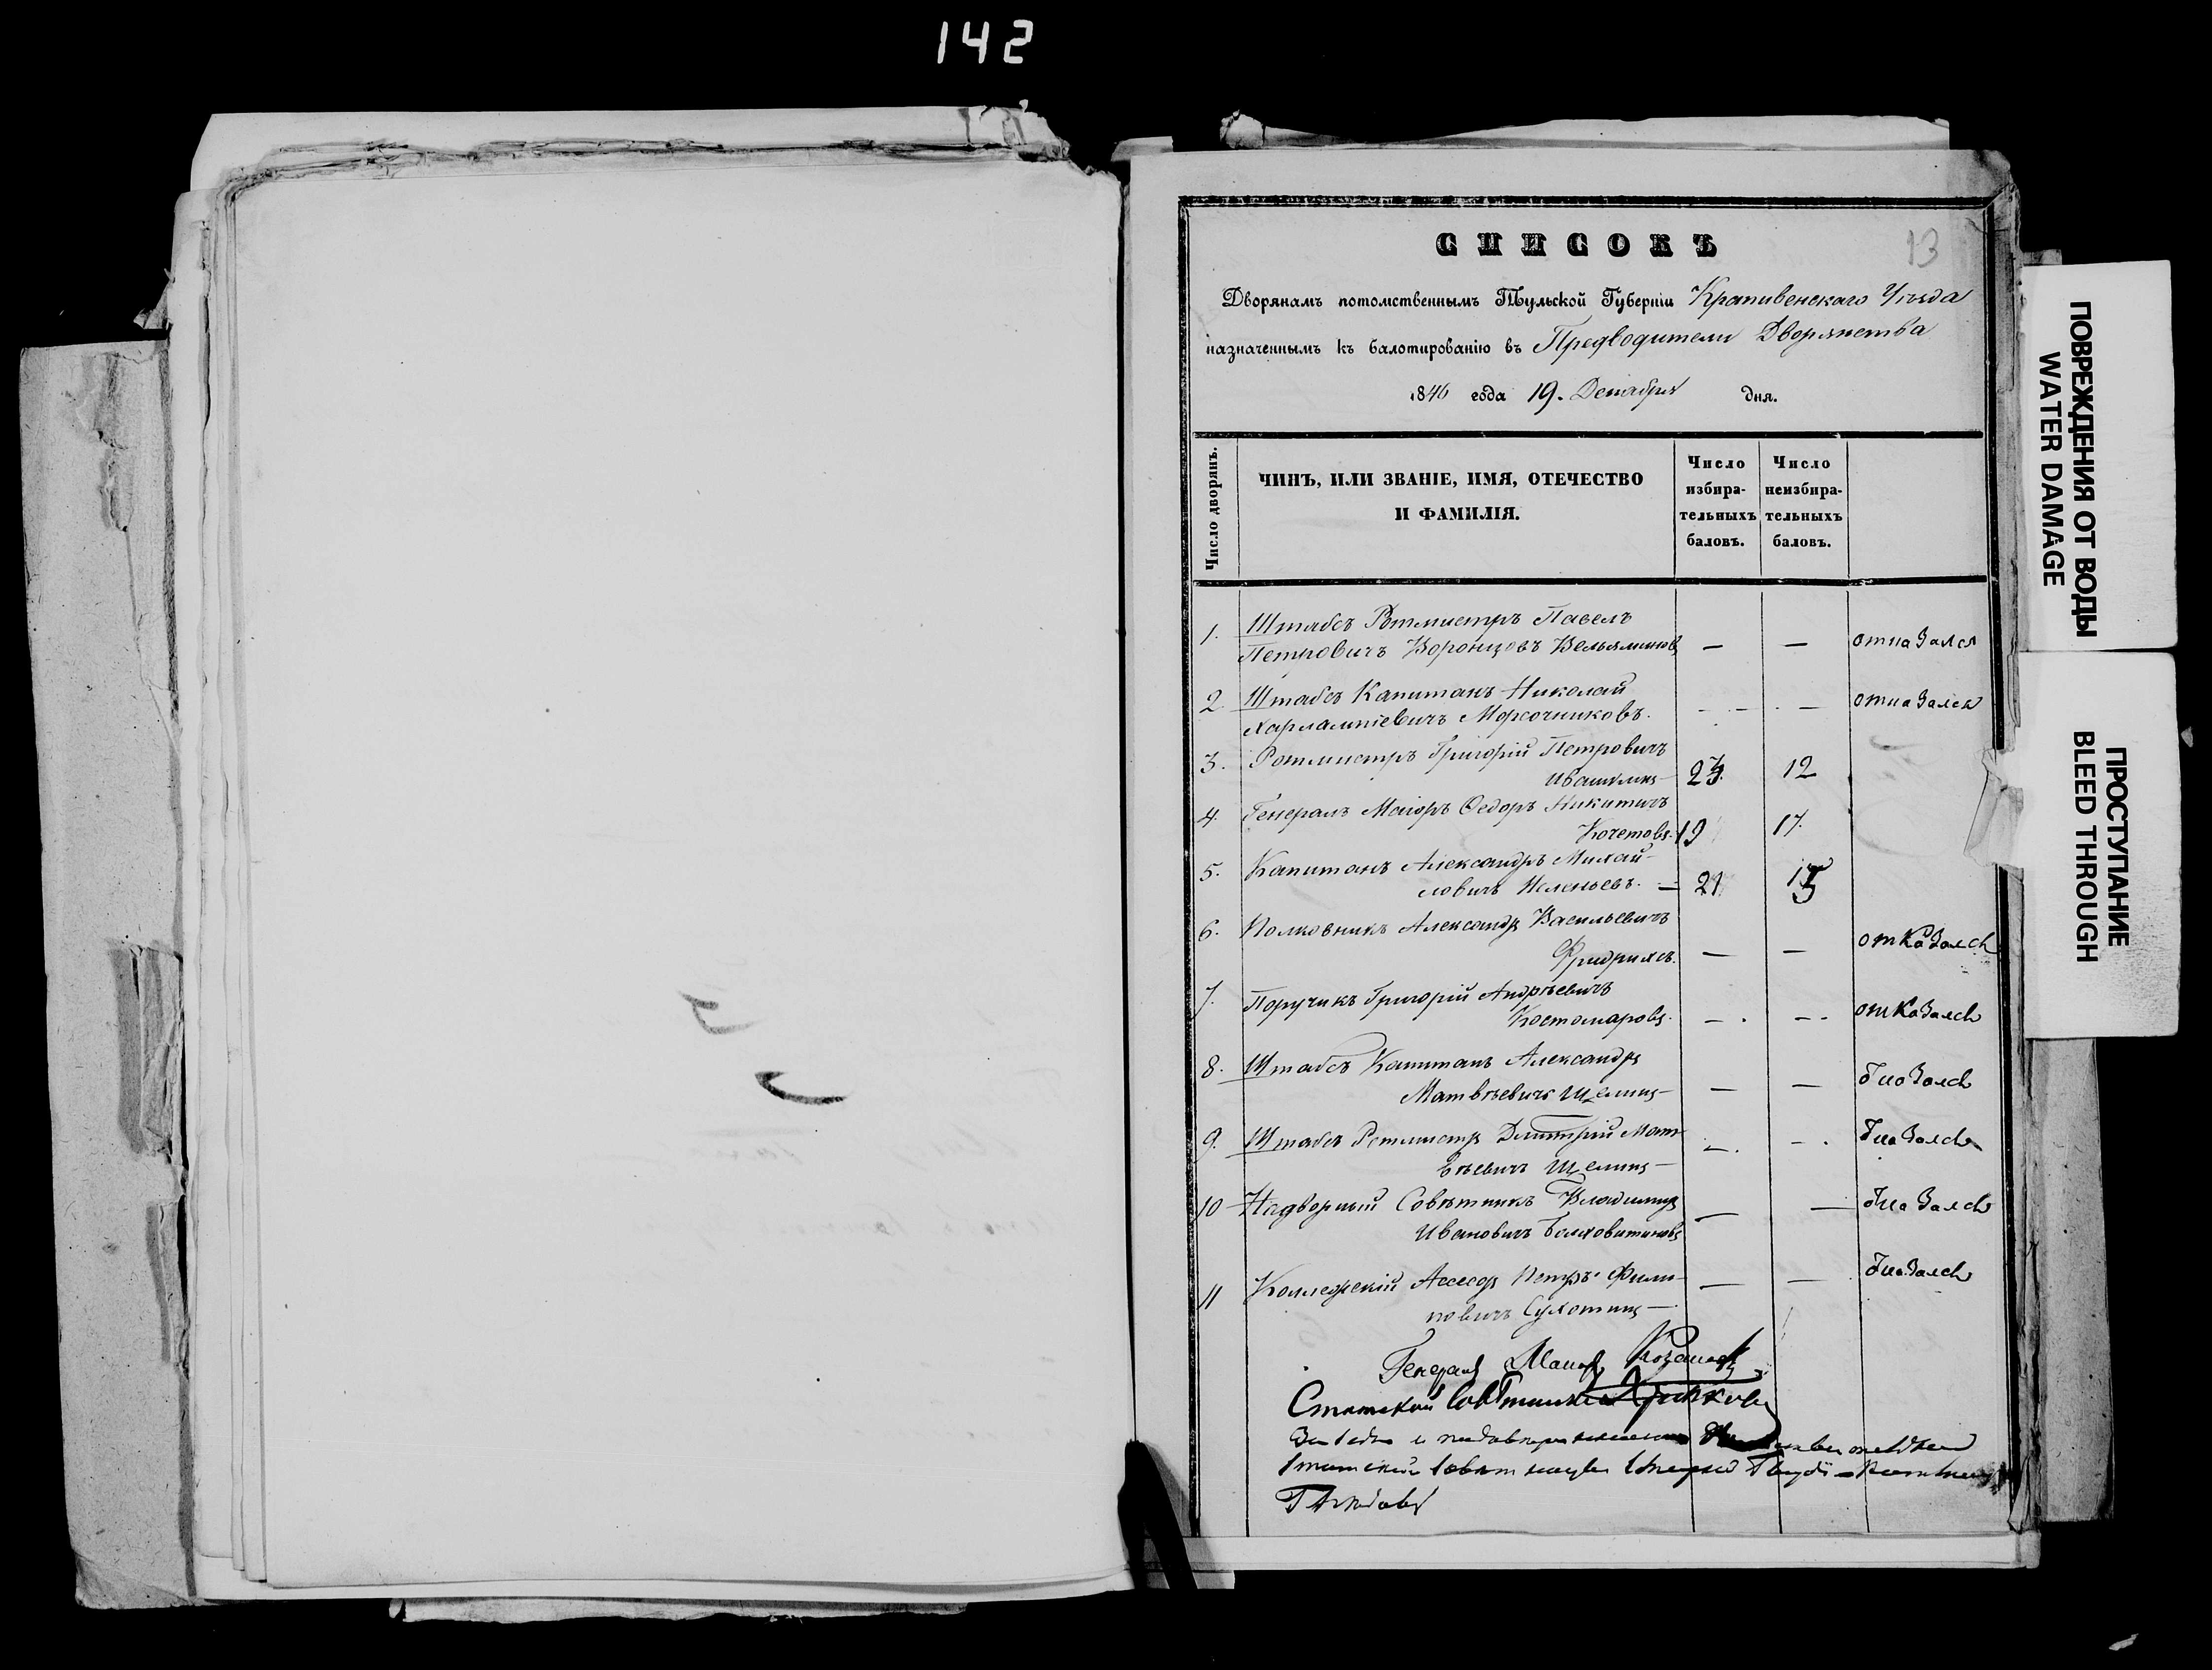 142
13
СПИСОКЪ
Дворянамъ потомственнымъ Тульской Губерніи Крапивенскаго Уѣзда
назначеннымъ къ балотированію въ Предводители Дворянства
1846 года 19. Декабря дня.
Число дворянъ.
ЧИНЪ, ИЛИ ЗВАНІЕ, ИМЯ, ОТЕЧЕСТВО
И ФАМИЛІЯ.
Число
избира-
тельныхъ
баловъ.
Число
неизбира-
тельныхъ
баловъ.
1. Штабсъ Ротмистръ Павелъ
Петровичъ Воронцовъ Вельяминовъ — — отказался
2 Штабсъ Капитанъ Николай
Харлампіевичъ — — отказался
3. Ротмистръ Григорій Петровичъ
Ивашкинъ — 12
4. Генералъ Маіоръ Ѳедоръ Никитичъ
Кочетовъ. 19 17.
5. Капитанъ Александръ Михай-
ловичъ — 21 15
6. Полковникъ Александръ Васильевичъ
Фридрихсъ. — — отказался
7. Поручикъ Григорій Андрѣевичъ
Костомаровъ. — — отказался
8. Штабсъ Капитанъ Александръ
Матвѣевичъ Щелинъ — — — отказался
9. Штабсъ Ротмистръ Дмитрій Мат-
вѣевичъ Щелинъ — — — отказался
10 Надворный Совѣтникъ Владиміръ
Ивановичъ Болховитиновъ — — отказался
11 Коллежскій Асесоръ Петръ Фили-
повичъ Сухотинъ — — — отказался
Генералъ Маіоръ
Статской Совѣтникъ
ПОВРЕЖДЕНИЯ ОТ ВОДЫ
WATER DAMAGE
ПРОСТУПАНИЕ
BLEED THROUGH